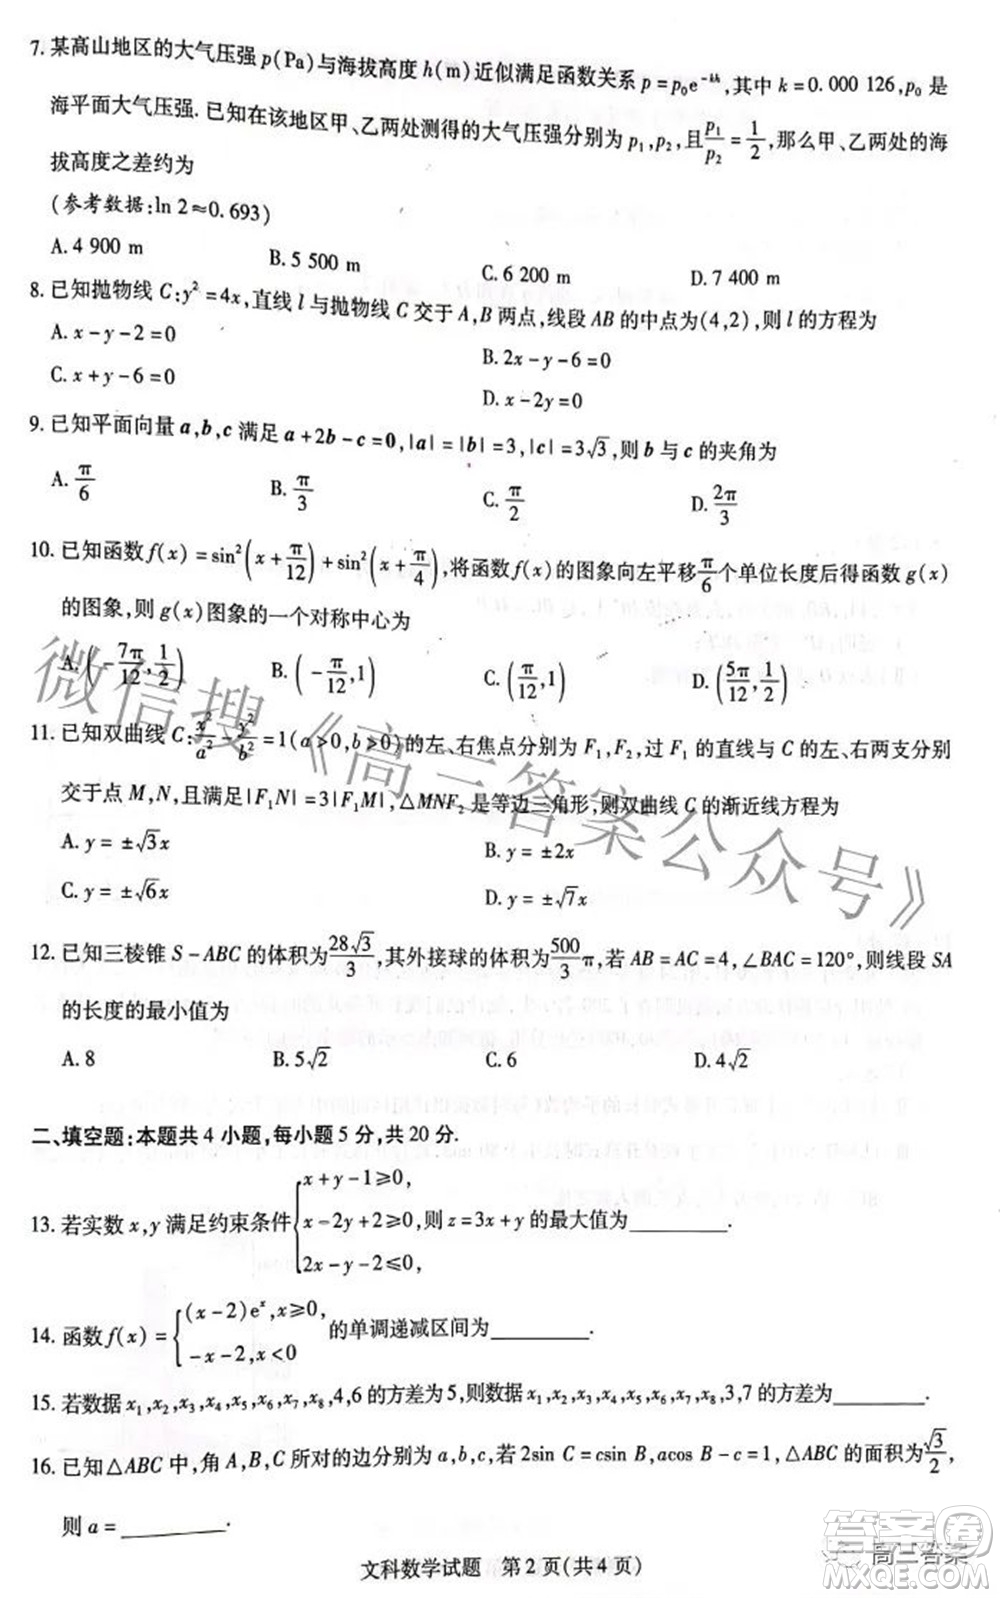 7. 某高山地区的大气压强 p(Pa)与海拔高度 h(m)近似满足函数关系 p=p₀e^{-kh},其中 k=0.000 126,p₀ 是
海平面大气压强. 已知在该地区甲、乙两处测得的大气压强分别为 p₁,p₂,且p₁/p₂=1/2,那么甲、乙两处的海
拔高度之差约为
(参考数据:ln 2≈0.693)
A. 4 900 m B. 5 500 m C. 6 200 m D. 7 400 m
8. 已知抛物线 C:y²=4x,直线 l 与抛物线 C 交于 A,B 两点,线段 AB 的中点为(4,2),则 l 的方程为
A. x-y-2=0 B. 2x-y-6=0
C. x+y-6=0 D. x-2y=0
9. 已知平面向量 a,b,c 满足 a+2b-c=0,|a|=|b|=3,|c|=3√3,则 b 与 c 的夹角为
A. π/6 B. π/3 C. π/2 D. 2π/3
10. 已知函数 f(x)=sin²(x+π/12)+sin²(x+π/4),将函数 f(x)的图象向左平移π/6个单位长度后得函数 g(x)
的图象,则 g(x)图象的一个对称中心为
A. (-7π/12,1/2) B. (-π/12,1) C. (π/12,1) D. (5π/12,1/2)
11. 已知双曲线 C:x²/a²-y²/b²=1(a>0,b>0)的左、右焦点分别为 F₁,F₂,过 F₁ 的直线与 C 的左、右两支分别
交于点 M,N,且满足|F₁N|=3|F₁M|,△MNF₂ 是等边三角形,则双曲线 C 的渐近线方程为
A. y=±√3x B. y=±2x
C. y=±√6x D. y=±√7x
12. 已知三棱锥 S-ABC 的体积为28√3/3,其外接球的体积为500/3π,若 AB=AC=4,∠BAC=120°,则线段 SA
的长度的最小值为
A. 8 B. 5√2 C. 6 D. 4√2
二、填空题:本题共 4 小题,每小题 5 分,共 20 分.
13. 若实数 x,y 满足约束条件{x+y-1≥0, x-2y+2≥0, 2x-y-2≤0,则 z=3x+y 的最大值为________.
14. 函数 f(x)={(x-2)eˣ,x≥0, -x-2,x<0 的单调递减区间为________.
15. 若数据 x₁,x₂,x₃,x₄,x₅,x₆,x₇,x₈,4,6 的方差为 5,则数据 x₁,x₂,x₃,x₄,x₅,x₆,x₇,x₈,3,7 的方差为________.
16. 已知△ABC 中,角 A,B,C 所对的边分别为 a,b,c,若 2sin C=5sin B,acos B-c=1,△ABC 的面积为√3/2,
则 a=________.
文科数学试题 第 2 页(共 4 页)
微信搜《高三答案公众号》
答案圈
高三答案
MXQE.COM